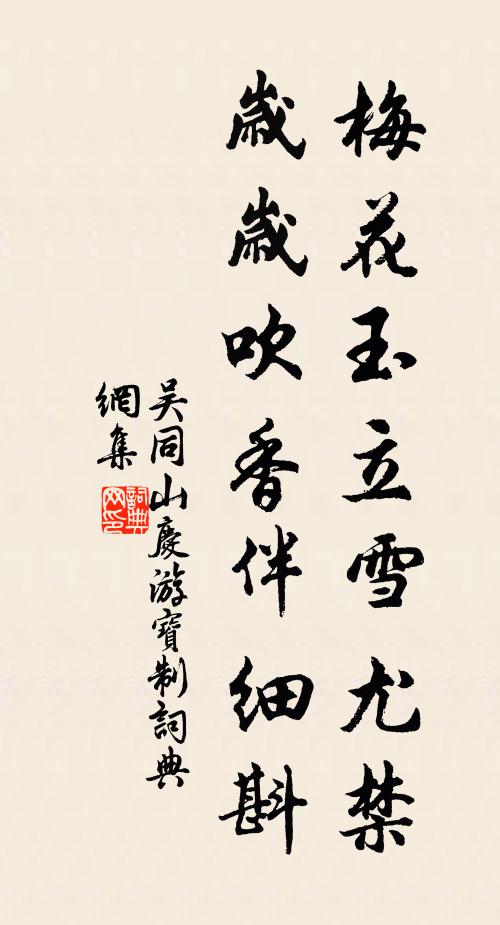 梅花玉立雪尤禁
歲歲吹香伴細斟
吳同山慶游寶制詞典
網集
詞典
网印